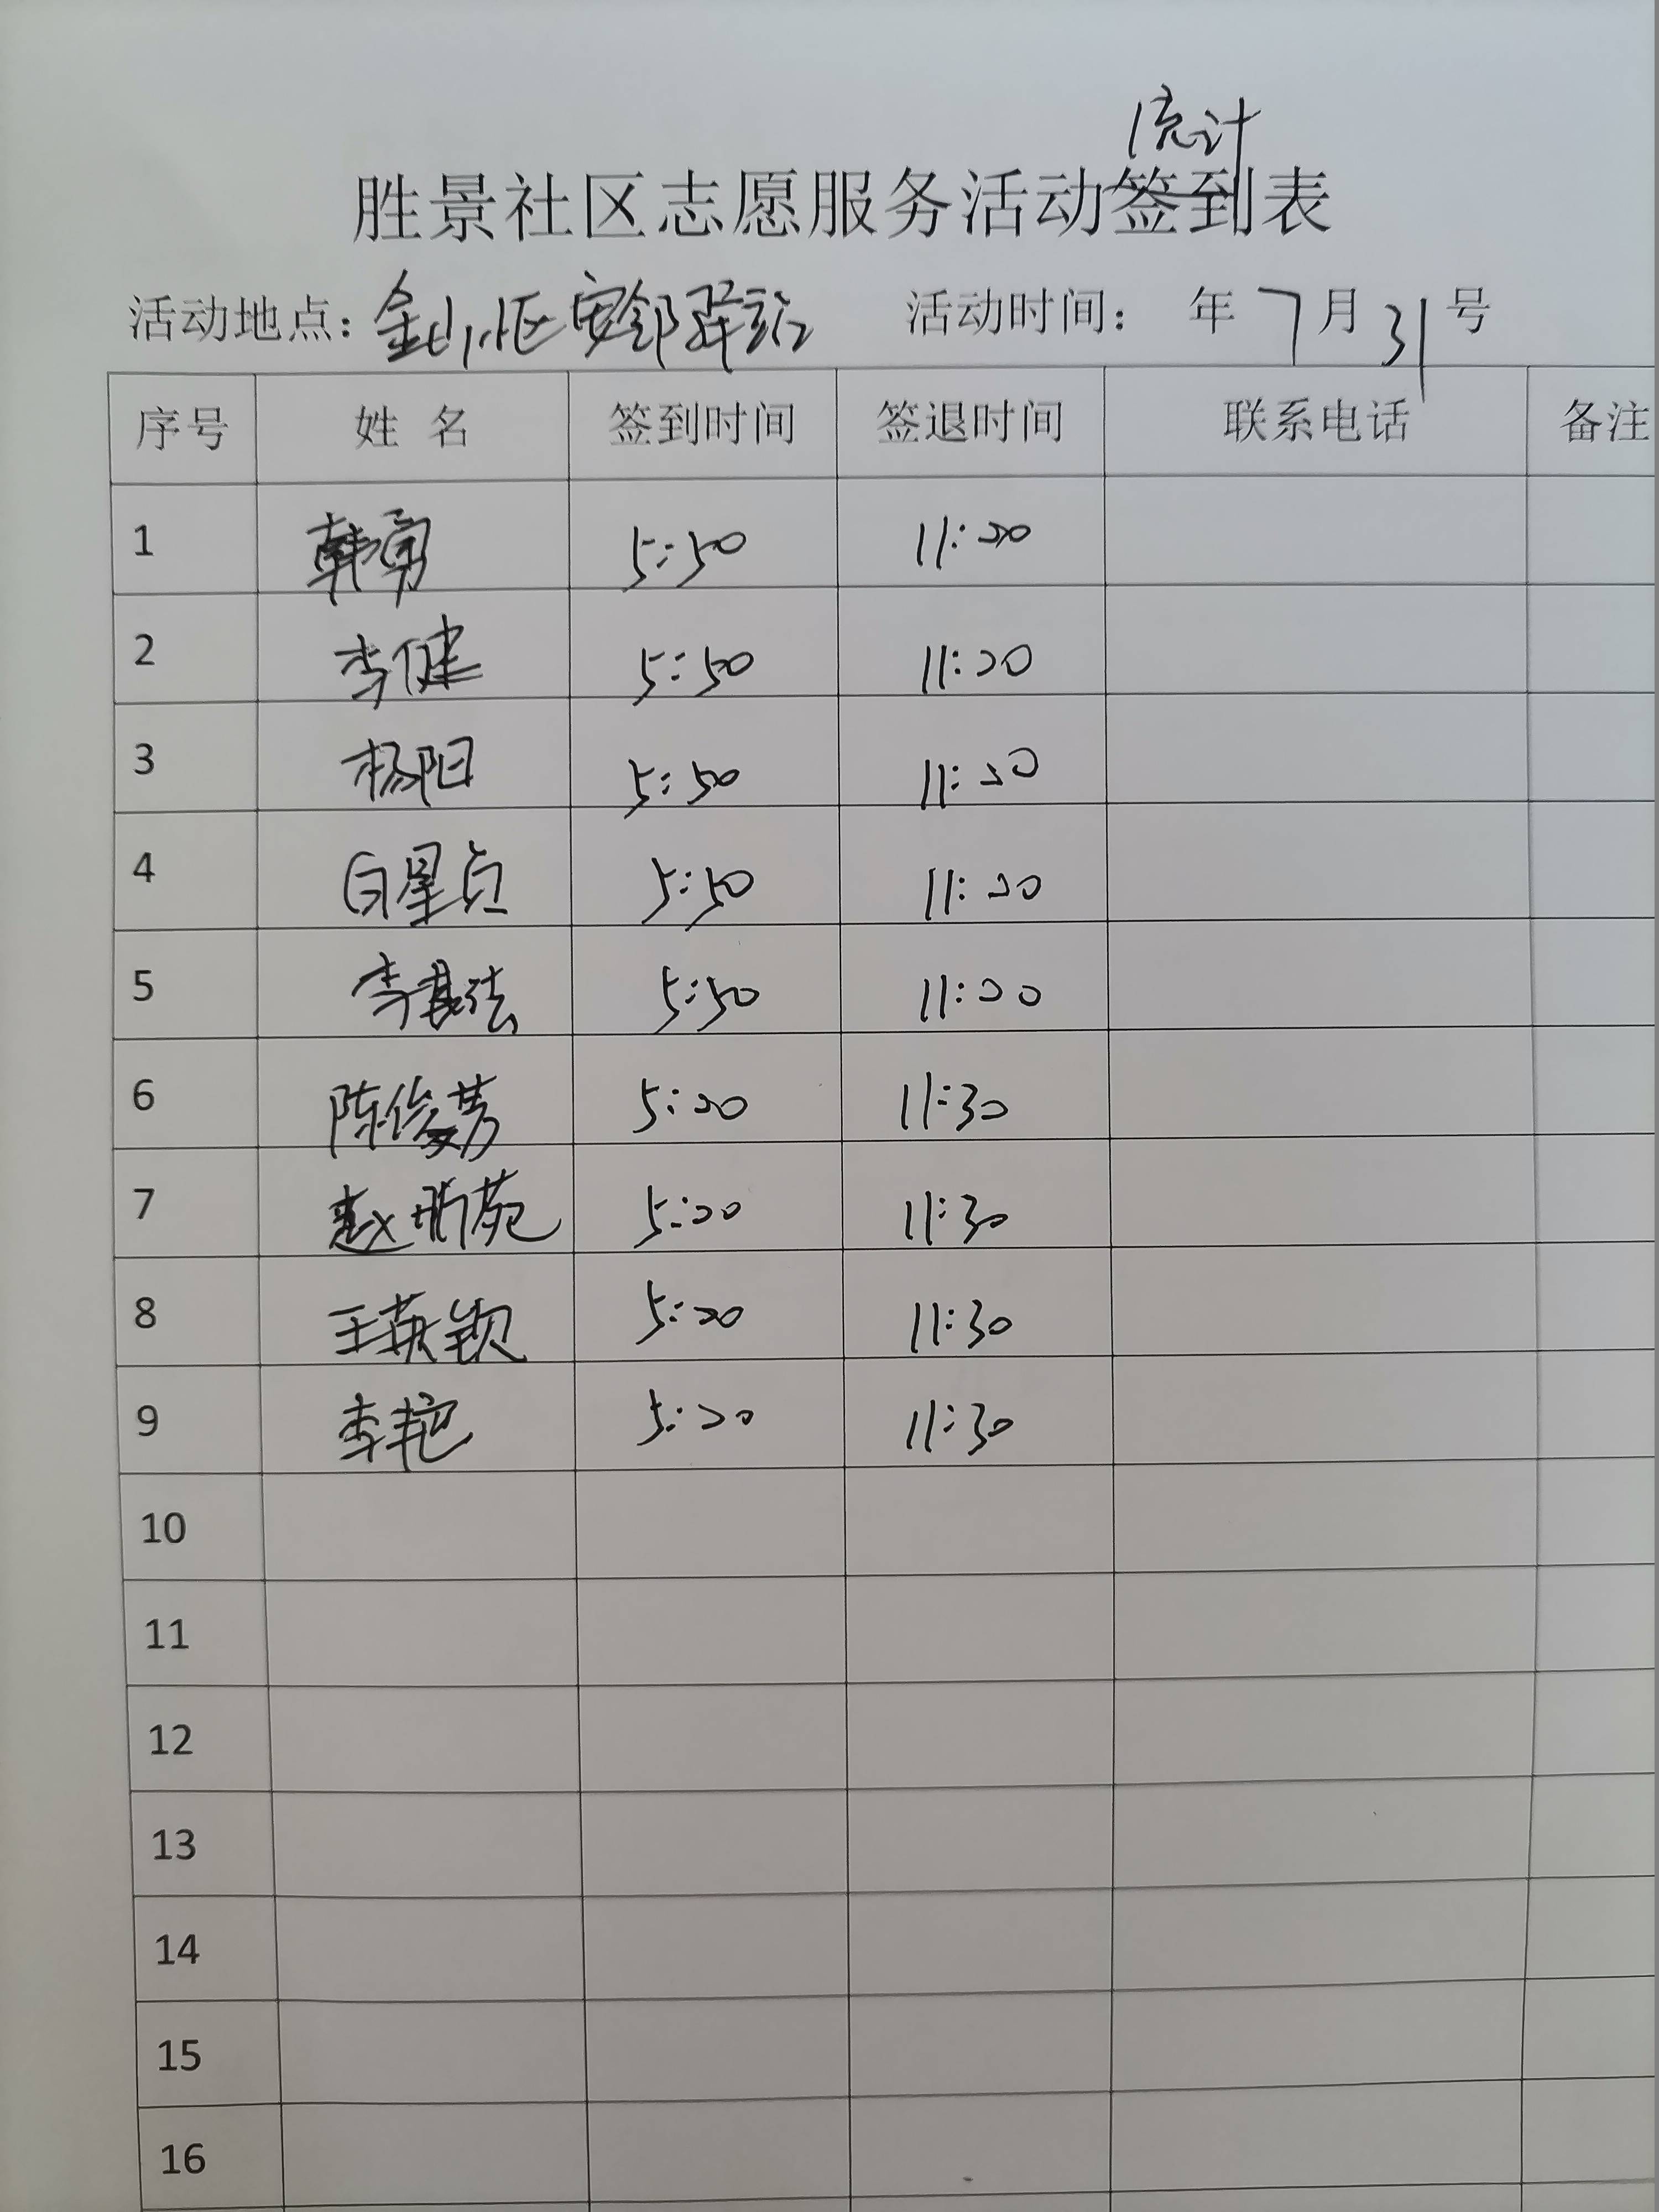 统计
胜景社区志愿服务活动签到表
活动地点: 金小区安邻驿站 活动时间: 年 7 月 31 号
序号 姓 名 签到时间 签退时间 联系电话 备注
1 韩勇 5:50 11:20
2 李健 5:50 11:20
3 杨阳 5:50 11:20
4 白星贞 5:50 11:20
5 李基法 5:50 11:20
6 陈俊芳 5:20 11:30
7 赵苑 5:20 11:30
8 王英钦 5:20 11:30
9 李艳 5:20 11:30
10
11
12
13
14
15
16